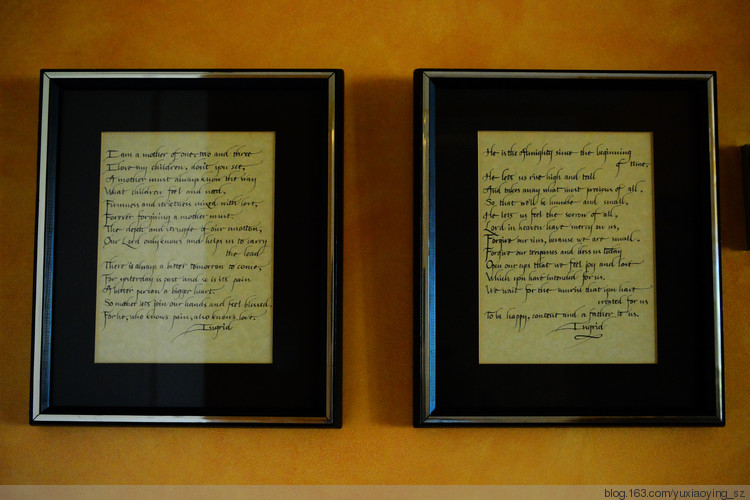 I am a mother of one, two and three
I love my children, don't you see,
A mother must always know the way
What children feel and need,
Firmness and strictness mixed with love,
Forever forgiving a mother must.
The depth and struggle of our emotion,
Our Lord only knows and helps us to carry
the load
There is always a better tomorrow to come,
For yesterday is past and so is its pain
A better person a bigger heart.
So mother lets join our hands and feel blessed.
For he, who knows pain, also knows love.
Ingrid
He is the Almighty since the beginning
of time,
He lets us rise high and tall
And takes away what most precious of all,
So, that we'll be humble and small,
He lets us feel the sorrow of all,
Lord in heaven have mercy on us,
Forgive our sins, because we are small.
Forgive our trespasses and bless us today
Open our eyes that we feel joy and love
Which you have intended for us.
We wait for the you have
created for us
To be happy, content and a father to us.
Ingrid
blog.163.com/yuxiaoying_sz